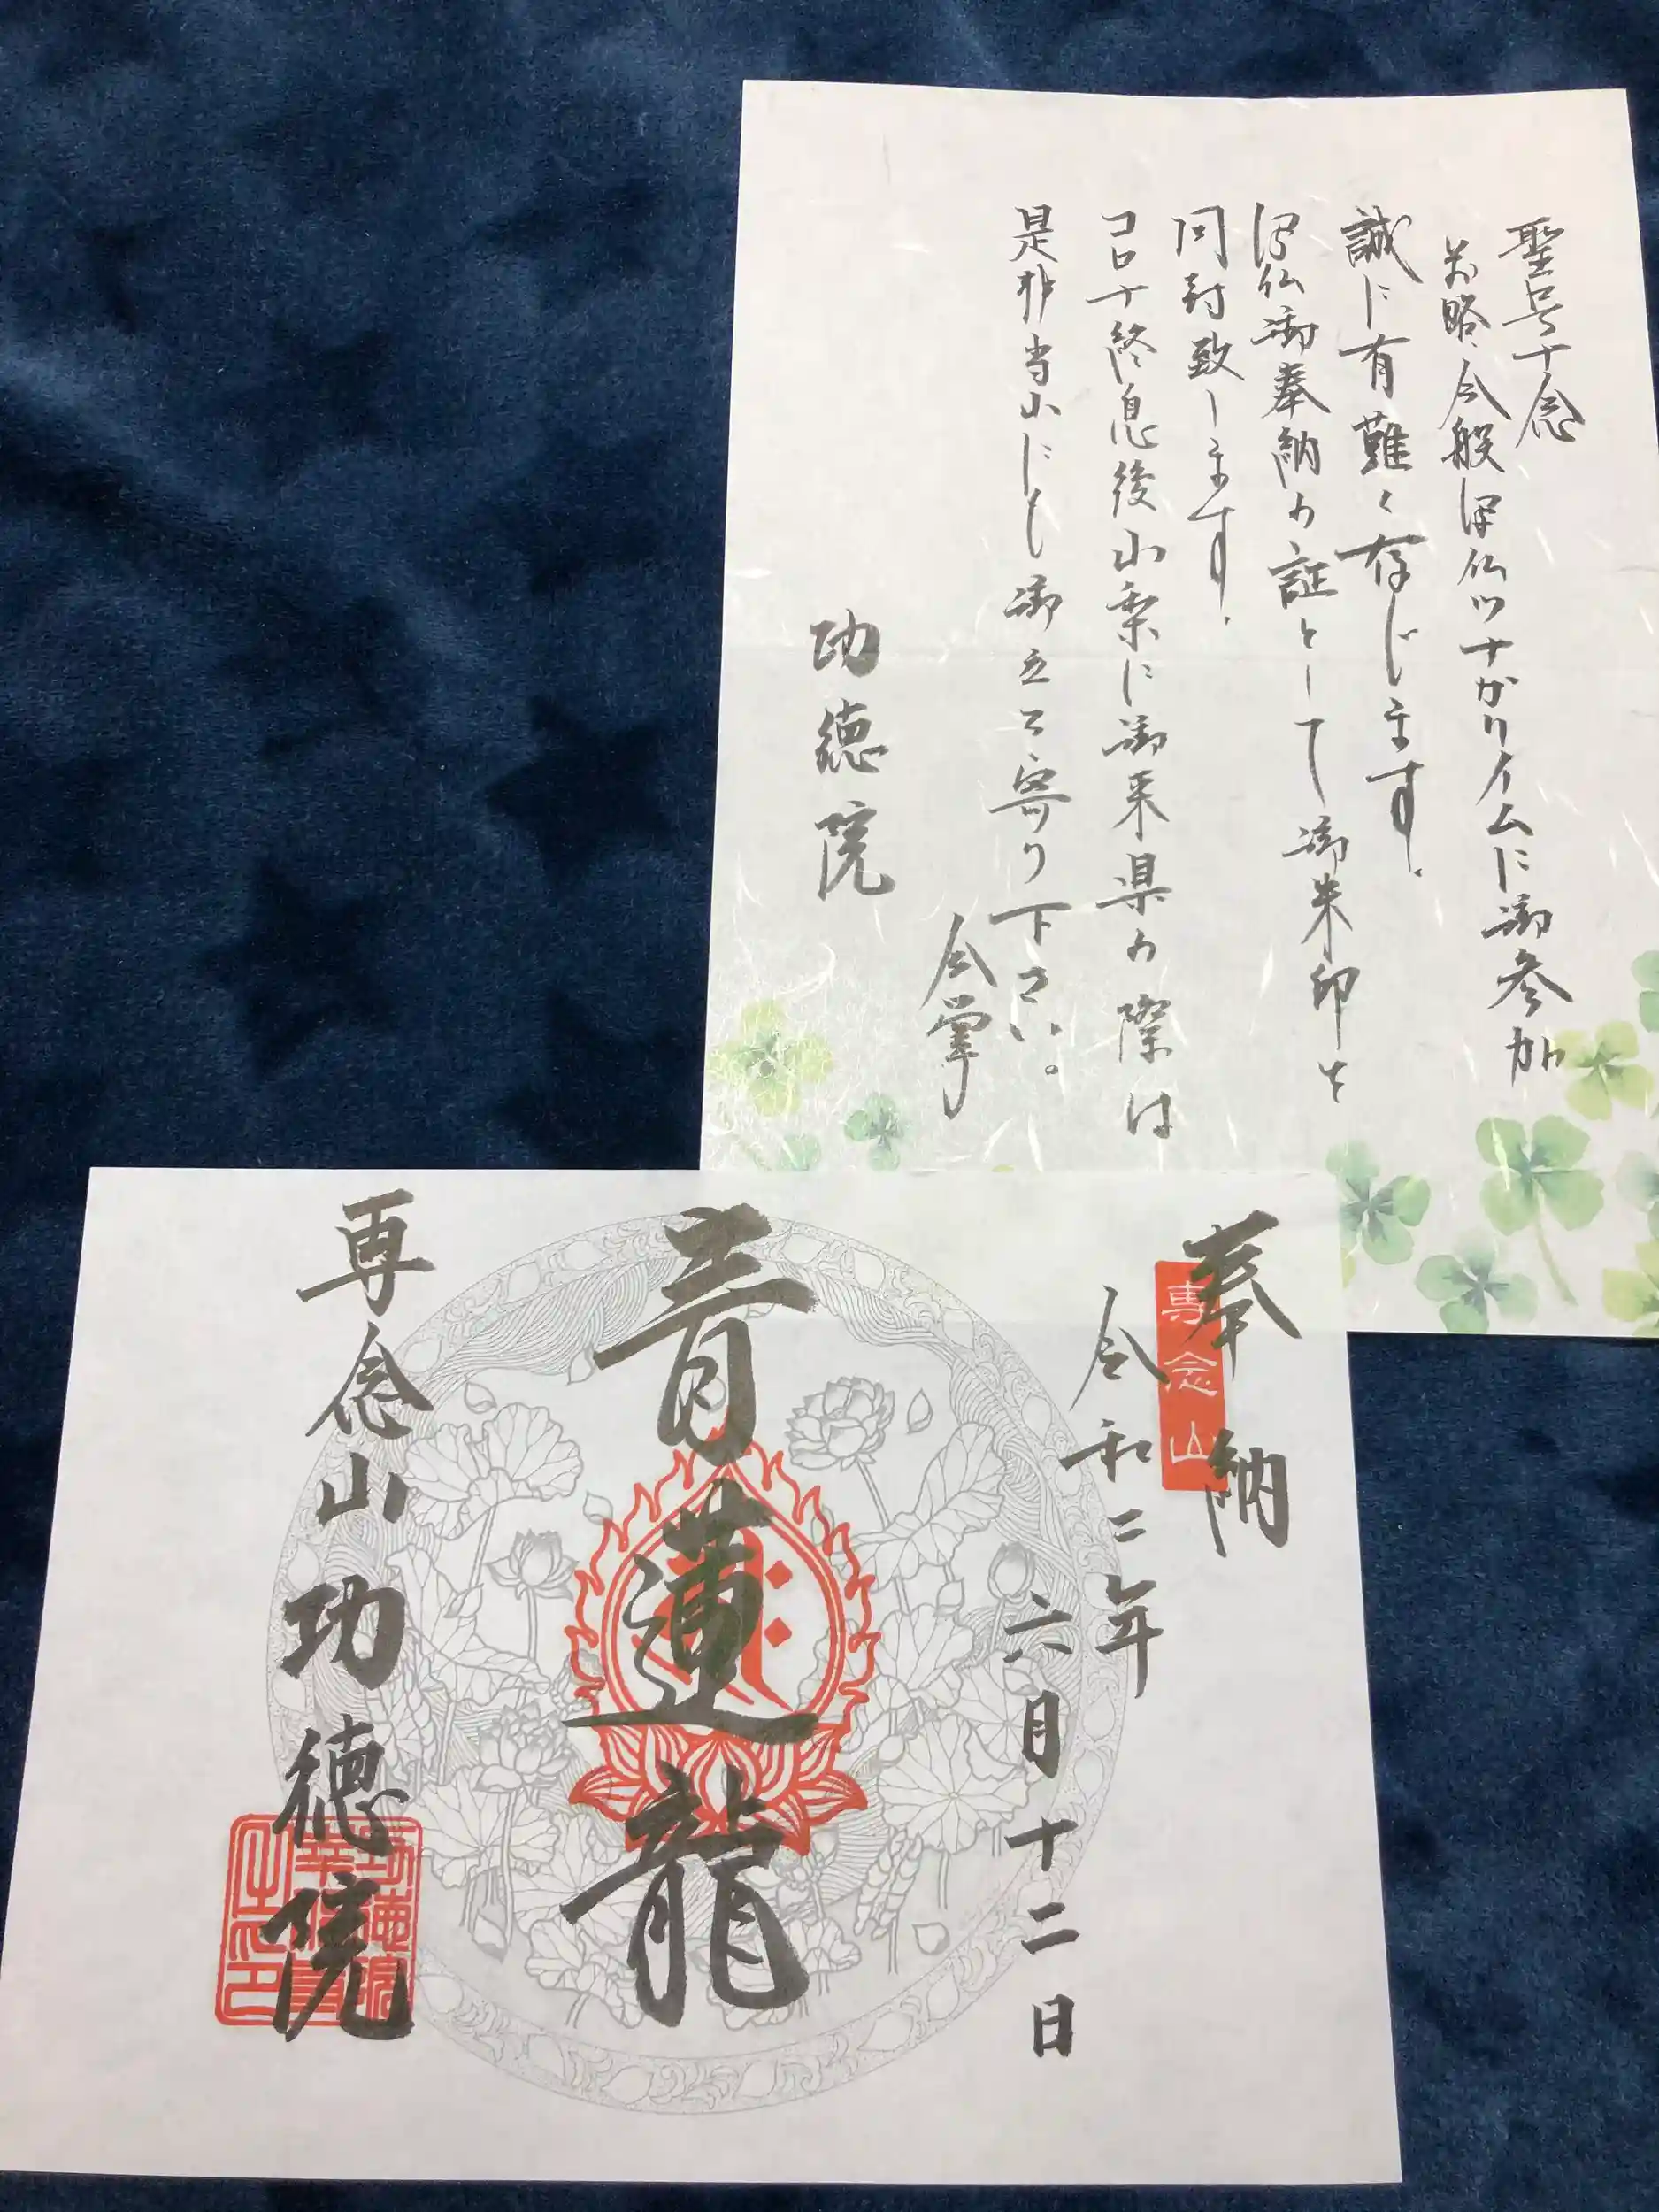 聖号十念
前略、今般写仏ツナガリイムに御参加
誠に有難く存じます。
写仏御奉納の証として御朱印を
同封致します。
コロナ終息後山梨に御来県の際は
是非当山にも御立て寄り下さい。
合掌
功徳院
奉納
専念山
令和二年
六月十二日
青蓮龍
専念山功徳院